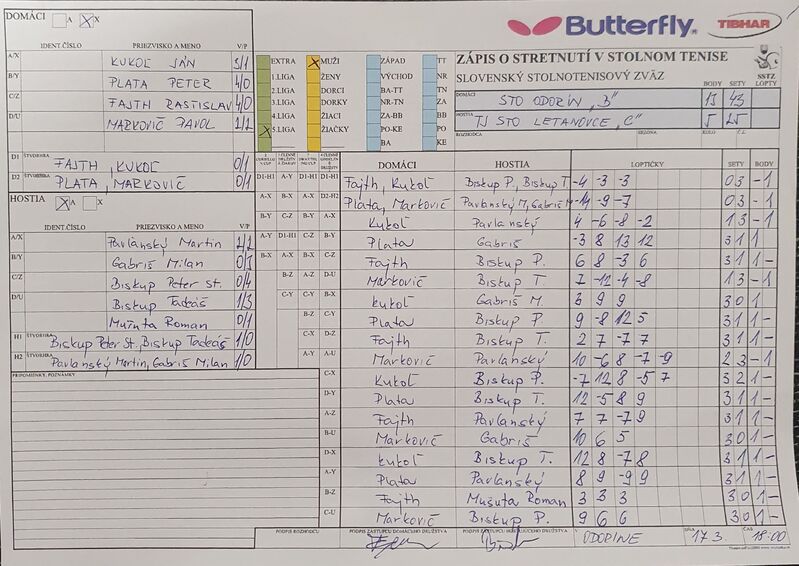 DOMÁCI A X
Butterfly
TIBHAR
IDENT.ČÍSLO PRIEZVISKO A MENO V/P
A/X KUKOĽ JÁN 3/1
B/Y PLATA PETER 4/0
C/Z FAJTH RASTISLAV 4/0
D/U MARKOVIČ PAVOL 2/2
D1 ŠTVORHRA FAJTH, KUKOĽ 0/1
D2 ŠTVORHRA PLATA, MARKOVIČ 0/1
HOSTIA X A X
IDENT.ČÍSLO PRIEZVISKO A MENO V/P
A/X Pavlanský Martin 2/2
B/Y Gabriš Milan 0/3
C/Z Biskup Peter st. 0/4
D/U Biskup Tadeáš 1/3
Mušuta Roman 0/1
H1 ŠTVORHRA Biskup Peter St, Biskup Tadeáš 1/0
H2 ŠTVORHRA Pavlanský Martin, Gabriš Milan 1/0
PRIPOMIENKY, POZNÁMKY
EXTRA X MUŽI ZÁPAD TT
1.LIGA ŽENY VÝCHOD NR
2.LIGA DORCI BA-TT TN
3.LIGA DORKY NR-TN ZA
4.LIGA ŽIACI ZA-BB BB
X 5.LIGA ŽIAČKY PO-KE PO
BA KE
ZÁPIS O STRETNUTÍ V STOLNOM TENISE
SLOVENSKÝ STOLNOTENISOVÝ ZVÄZ
SSTZ
BODY SETY LOPTY
DOMÁCI STO ODORÍN "B" 13 43
HOSTIA TJ STO LETANOVCE "C" 5 25
ROZHODCA SEZÓNA KOLO Č.Z.
DOMÁCI HOSTIA LOPTIČKY SETY BODY
D1-H1 A-Y D1-H1 D1-H1 Fajth, Kukoľ Biskup P, Biskup T. -4 -3 -3 0 3 - 1
A-X B-X A-X D2-H2 Plata, Markovič Pavlanský M, Gabriš M -14 -9 -7 0 3 - 1
B-Y C-Z B-Y A-X Kukoľ Pavlanský 4 -6 -8 -2 1 3 - 1
A-Y D1-H1 C-Z B-Y Plata Gabriš -3 8 13 12 3 1 1
B-X A-X B-X C-Z Fajth Biskup P. 6 8 -3 6 3 1 1 -
B-Z A-Z D-U Markovič Biskup T. 7 -12 -4 -8 1 3 - 1
C-Y C-Y B-X Kukoľ Gabriš M. 3 9 9 3 0 1
B-Z C-Y Plata Biskup P. 9 -8 12 5 3 1 1 -
C-X D-Z Fajth Biskup T. 2 7 -7 7 3 1 1 -
A-Y A-U Markovič Pavlanský 10 -6 8 -7 -9 2 3 - 1
C-X Kukoľ Biskup P. -7 12 8 -5 7 3 2 1 -
D-Y Plata Biskup T. 12 -5 8 9 3 1 1 -
A-Z Fajth Pavlanský 7 7 -7 9 3 1 1 -
B-U Markovič Gabriš 10 6 5 3 0 1 -
D-X Kukoľ Biskup T. 12 8 -7 8 3 1 1 -
A-Y Plata Pavlanský 8 9 -9 9 3 1 1 -
B-Z Fajth Mušuta Roman 3 3 3 3 0 1 -
C-U Markovič Biskup P. 9 6 6 3 0 1 -
PODPIS ROZHODCU PODPIS ZÁSTUPCU DOMÁCEHO DRUŽSTVA PODPIS ZÁSTUPCU HOSŤUJÚCEHO DRUŽSTVA V DŇA 17.3. ČAS 18:00